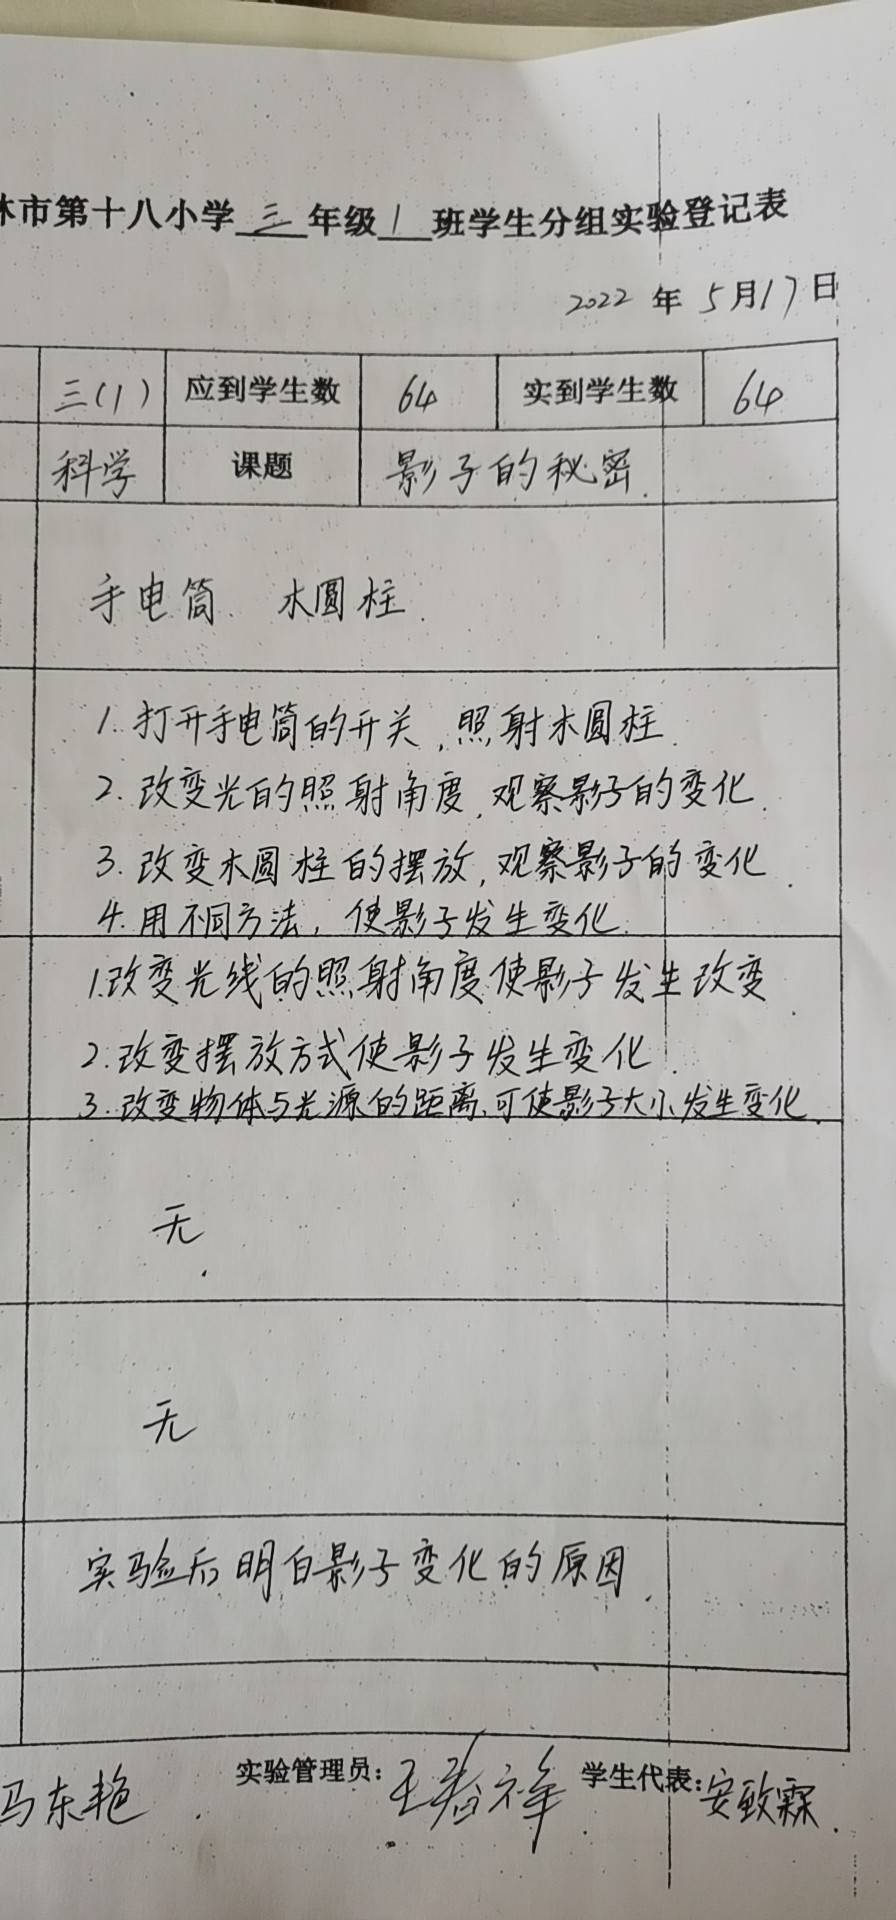 市第十八小学三年级1班学生分组实验登记表
2022年5月17日
三(1) 应到学生数 64 实到学生数 64
科学 课题 影子的秘密.
手电筒. 木圆柱.
1. 打开手电筒的开关,照射木圆柱.
2. 改变光的照射角度,观察影子的变化.
3. 改变木圆柱的摆放,观察影子的变化.
4. 用不同方法,使影子发生变化.
1.改变光线的照射角度使影子发生改变
2.改变摆放方式使影子发生变化.
3.改变物体与光源的距离,可使影子大小发生变化.
无
无
实验后明白影子变化的原因.
马东艳. 实验管理员: 王春祥 学生代表: 安致霖.